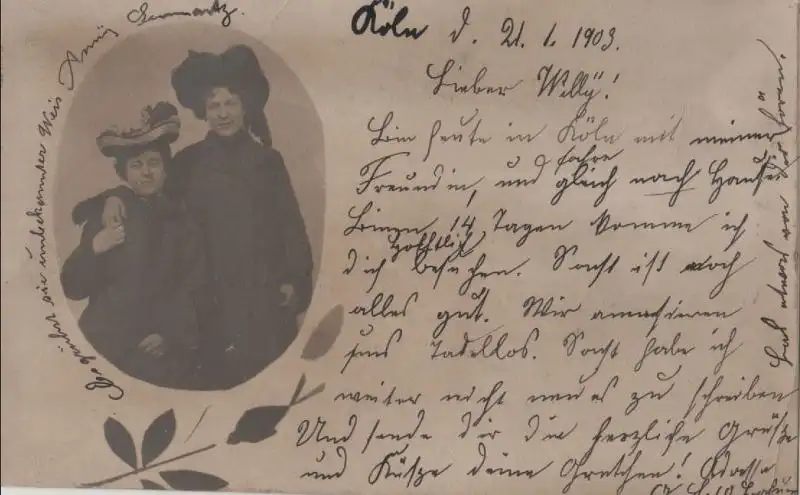 Köln d. 21. 1. 1903.
Lieber Willÿ!
Bin heute in Köln mit meiner
Freundin, und fahre gleich nach Hause
Binnen 14 Tagen komme ich
dich hoffentlich besuchen. Sonst ist noch
alles gut. Wir amüsieren
uns Tadellos. Sonst habe ich
weiter nicht neues zu schreiben
Und sende dir die herzliche Grüße
und Küsse deine Gretchen! Adresse
Es grüßt sie unbekannter Weis Anni